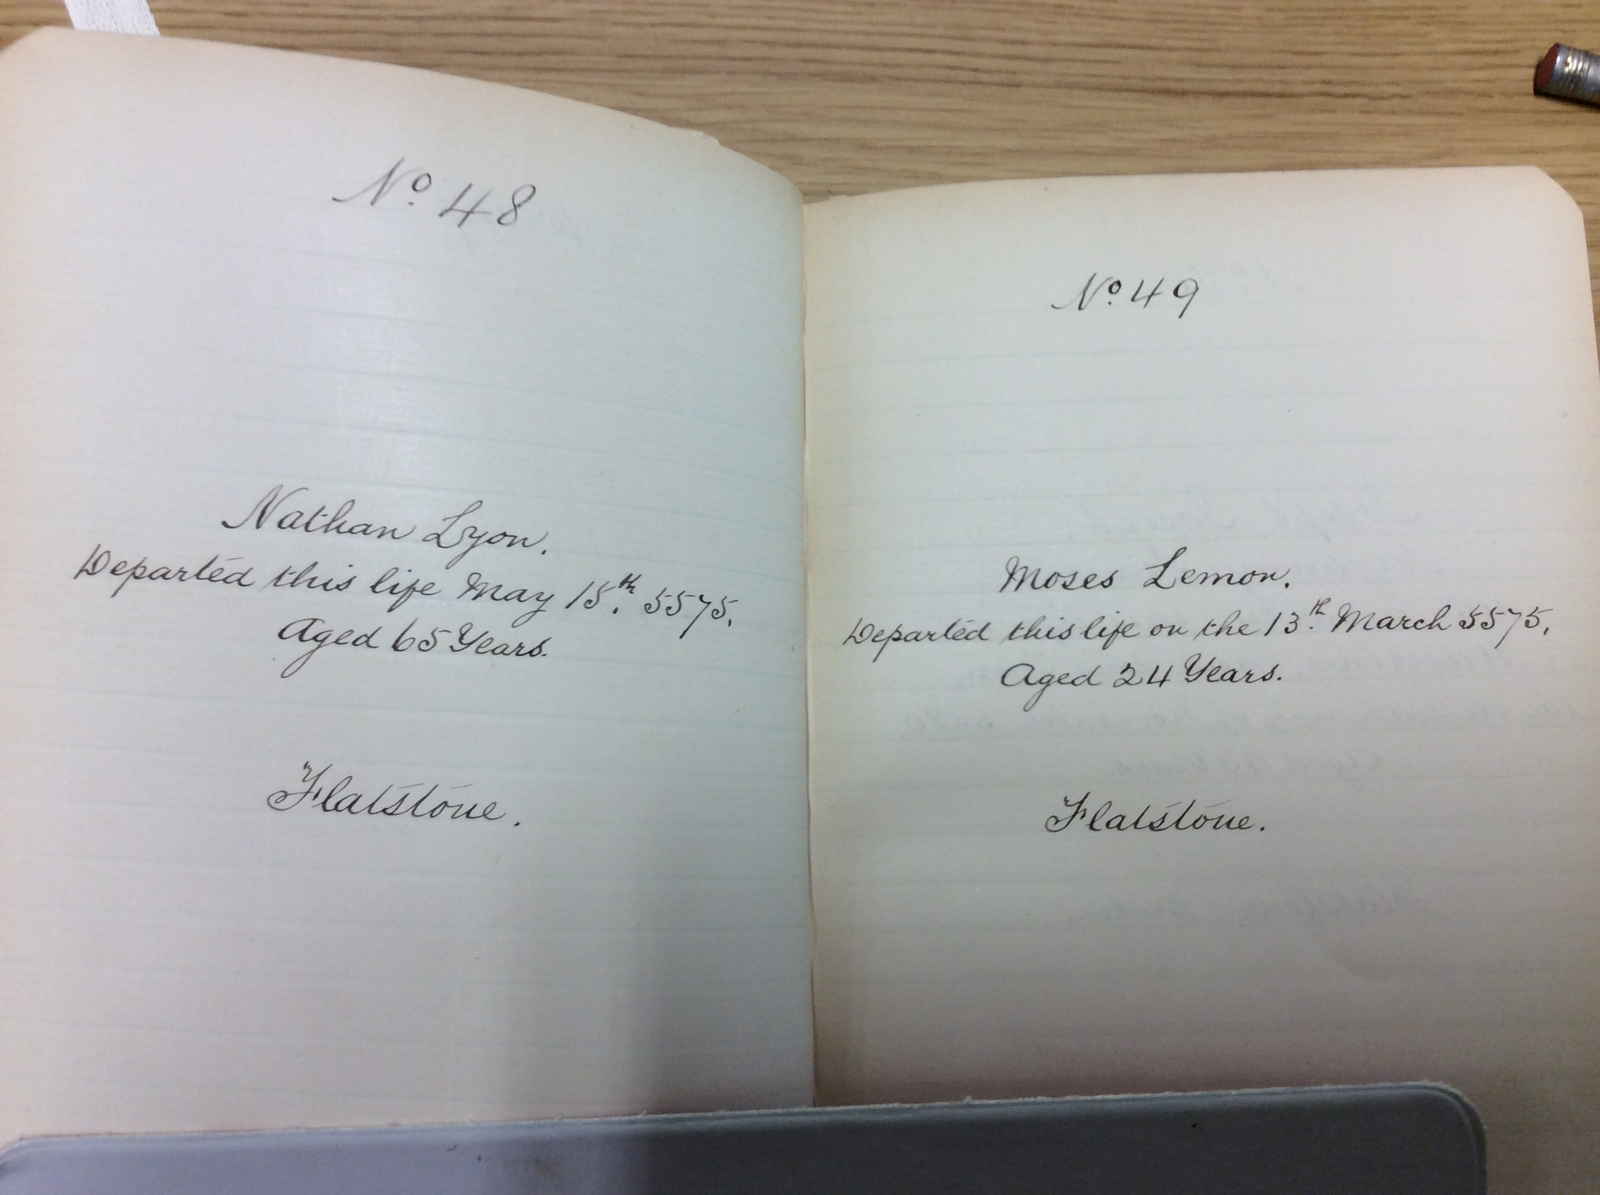 No. 48
Nathan Lyon.
Departed this life May 15th. 5575.
Aged 65 Years.
Flatstone.
No. 49
Moses Lemon.
Departed this life on the 13th. March 5575.
Aged 24 Years.
Flatstone.